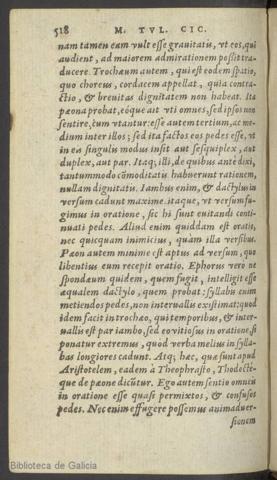 518 M. TVL. CIC.
nam tamen eam vult esse grauitatis, vt eos, qui
audient, ad maiorem admirationem possit tra-
ducere. Trochæum autem, qui est eodem spatio,
quo choreus, cordacem appellat, quia contra-
ctio, & breuitas dignitatem non habeat. Ita
pæona probat, eóque ait vti omnes, sed ipsos non
sentire, cum vtantur: esse autem tertium, ac me-
dium inter illos; sed ita factos eos pedes esse, vt
in eis singulis modus insit aut sesquiplex, aut
duplex, aut par. Itaq; illi, de quibus antè dixi,
tantummodo cõmoditatis habuerunt rationem,
nullam dignitatis. Iambus enim, & dactylus in
versum cadunt maxime. itaque, vt versum fu-
gimus in oratione, sic hi sunt euitandi conti-
nuati pedes. Aliud enim quiddam est oratio,
nec quicquam inimicius, quàm illa versibus.
Pæon autem minime est aptus ad versum, quo
libentius eum recepit oratio. Ephorus vero ne
spondæum quidem, quem fugit, intelligit esse
æqualem dactylo, quem probat: syllabis enim
metiendos pedes, non interuallis existimat; quod
idem facit in trochæo, qui temporibus, & inter-
uallis est par iambo, sed eo vitiosus in oratione, si
ponatur extremus, quòd verba melius in sylla-
bas longiores cadunt. Atq; hæc, quæ sunt apud
Aristotelem, eadem à Theophrasto, Thodecte-
que de pæone dicũtur. Ego autem sentio omnis
in oratione esse quasi permixtos, & confusos
pedes. Nec enim effugere possemus animaduer-
sionem
Biblioteca de Galicia